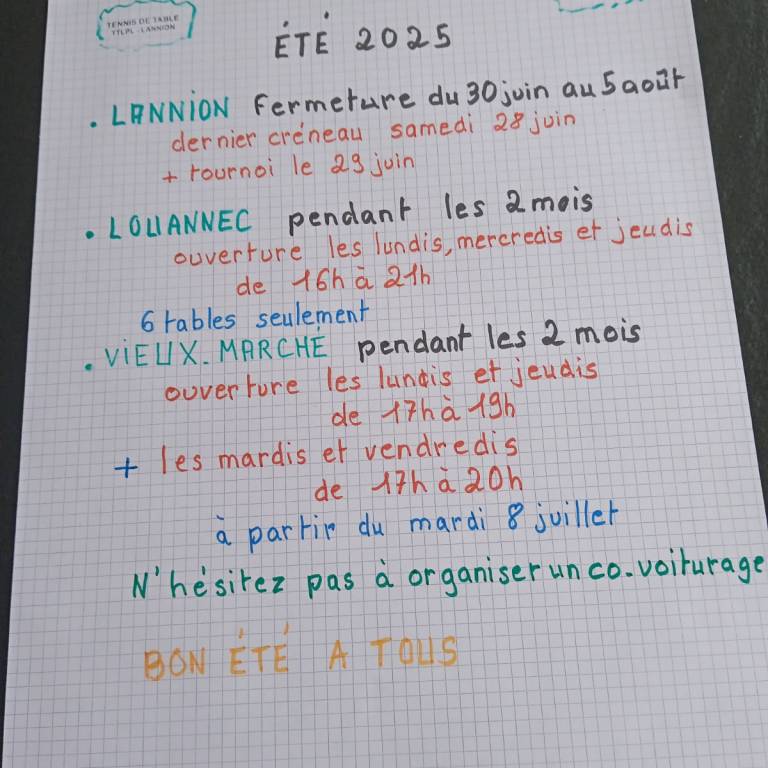 TENNIS DE TABLE
TTLPL - LANNION
ÉTÉ 2025
. LANNION Fermeture du 30 juin au 5 août
dernier créneau samedi 28 juin
+ tournoi le 29 juin
. LOUANNEC pendant les 2 mois
ouverture les lundis, mercredis et jeudis
de 16h à 21h
6 tables seulement
. ViEUX. MARCHÉ pendant les 2 mois
ouverture les lundis et jeudis
de 17h à 19h
+ les mardis et vendredis
de 17h à 20h
à partir du mardi 8 juillet
N'hésitez pas à organiser un co.voiturage
BON ÉTÉ A TOUS